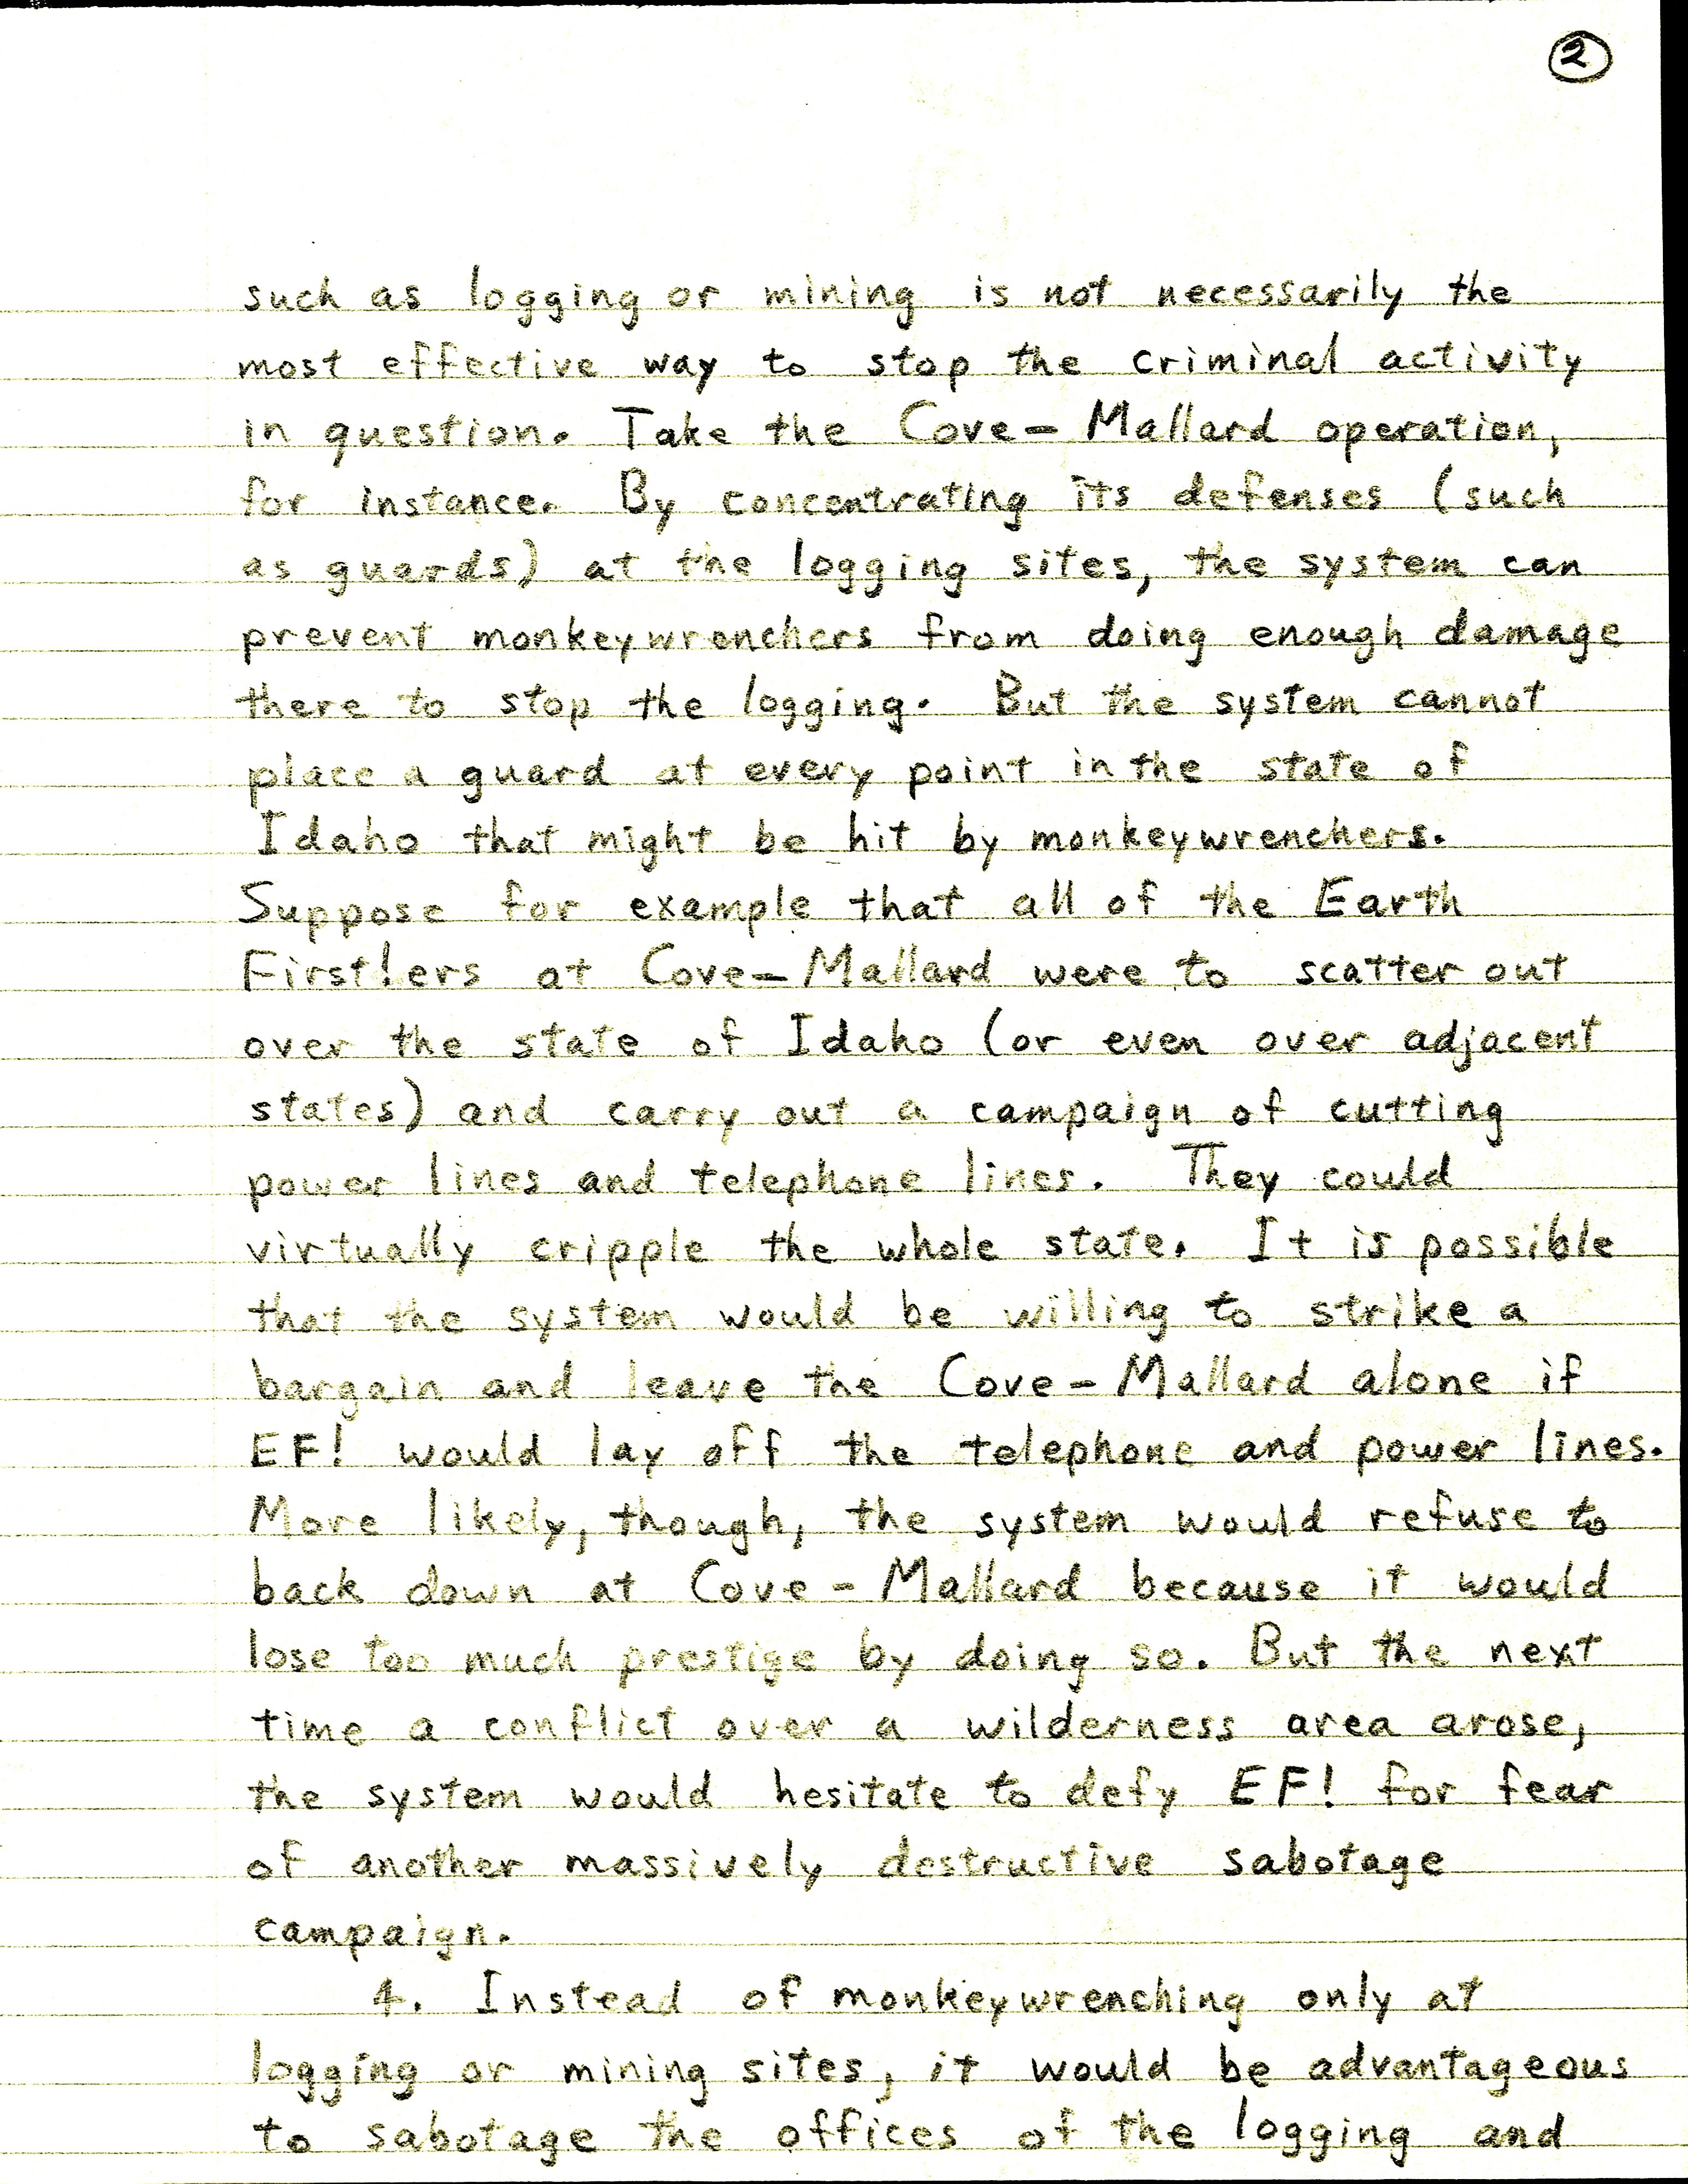 2
such as logging or mining is not necessarily the
most effective way to stop the criminal activity
in question. Take the Cove-Mallard operation,
for instance. By concentrating its defenses (such
as guards) at the logging sites, the system can
prevent monkeywrenchers from doing enough damage
there to stop the logging. But the system cannot
place a guard at every point in the state of
Idaho that might be hit by monkeywrenchers.
Suppose for example that all of the Earth
First!ers at Cove-Mallard were to scatter out
over the state of Idaho (or even over adjacent
states) and carry out a campaign of cutting
power lines and telephone lines. They could
virtually cripple the whole state. It is possible
that the system would be willing to strike a
bargain and leave the Cove-Mallard alone if
EF! would lay off the telephone and power lines.
More likely, though, the system would refuse to
back down at Cove-Mallard because it would
lose too much prestige by doing so. But the next
time a conflict over a wilderness area arose,
the system would hesitate to defy EF! for fear
of another massively destructive sabotage
campaign.
4. Instead of monkeywrenching only at
logging or mining sites, it would be advantageous
to sabotage the offices of the logging and